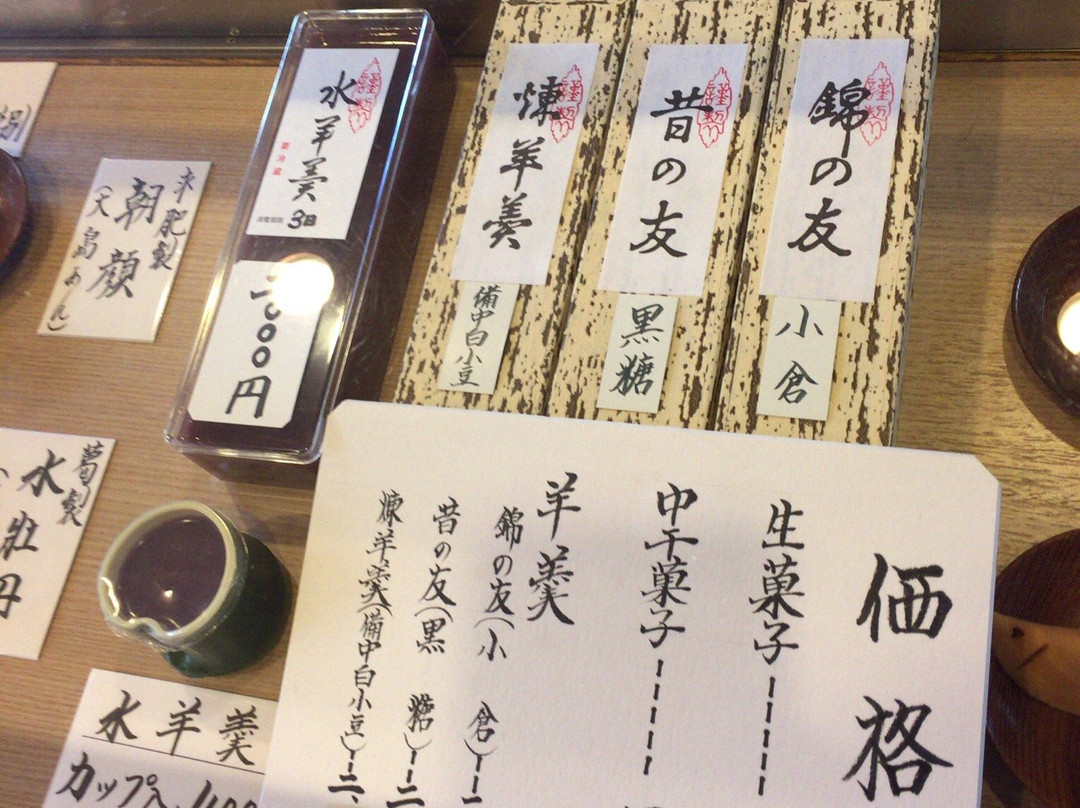 求肥製
朝顔
(大島あん)
水羊羹
要冷蔵
3日
円
煉羊羹
備中白小豆
昔の友
黒糖
錦の友
小倉
謹製
謹製
謹製
謹製
葛製
水牡丹
水羊羹
カップ入
価格
生菓子
中干菓子
羊羹
錦の友(小倉)
昔の友(黒糖)
煉羊羹(備中白小豆)